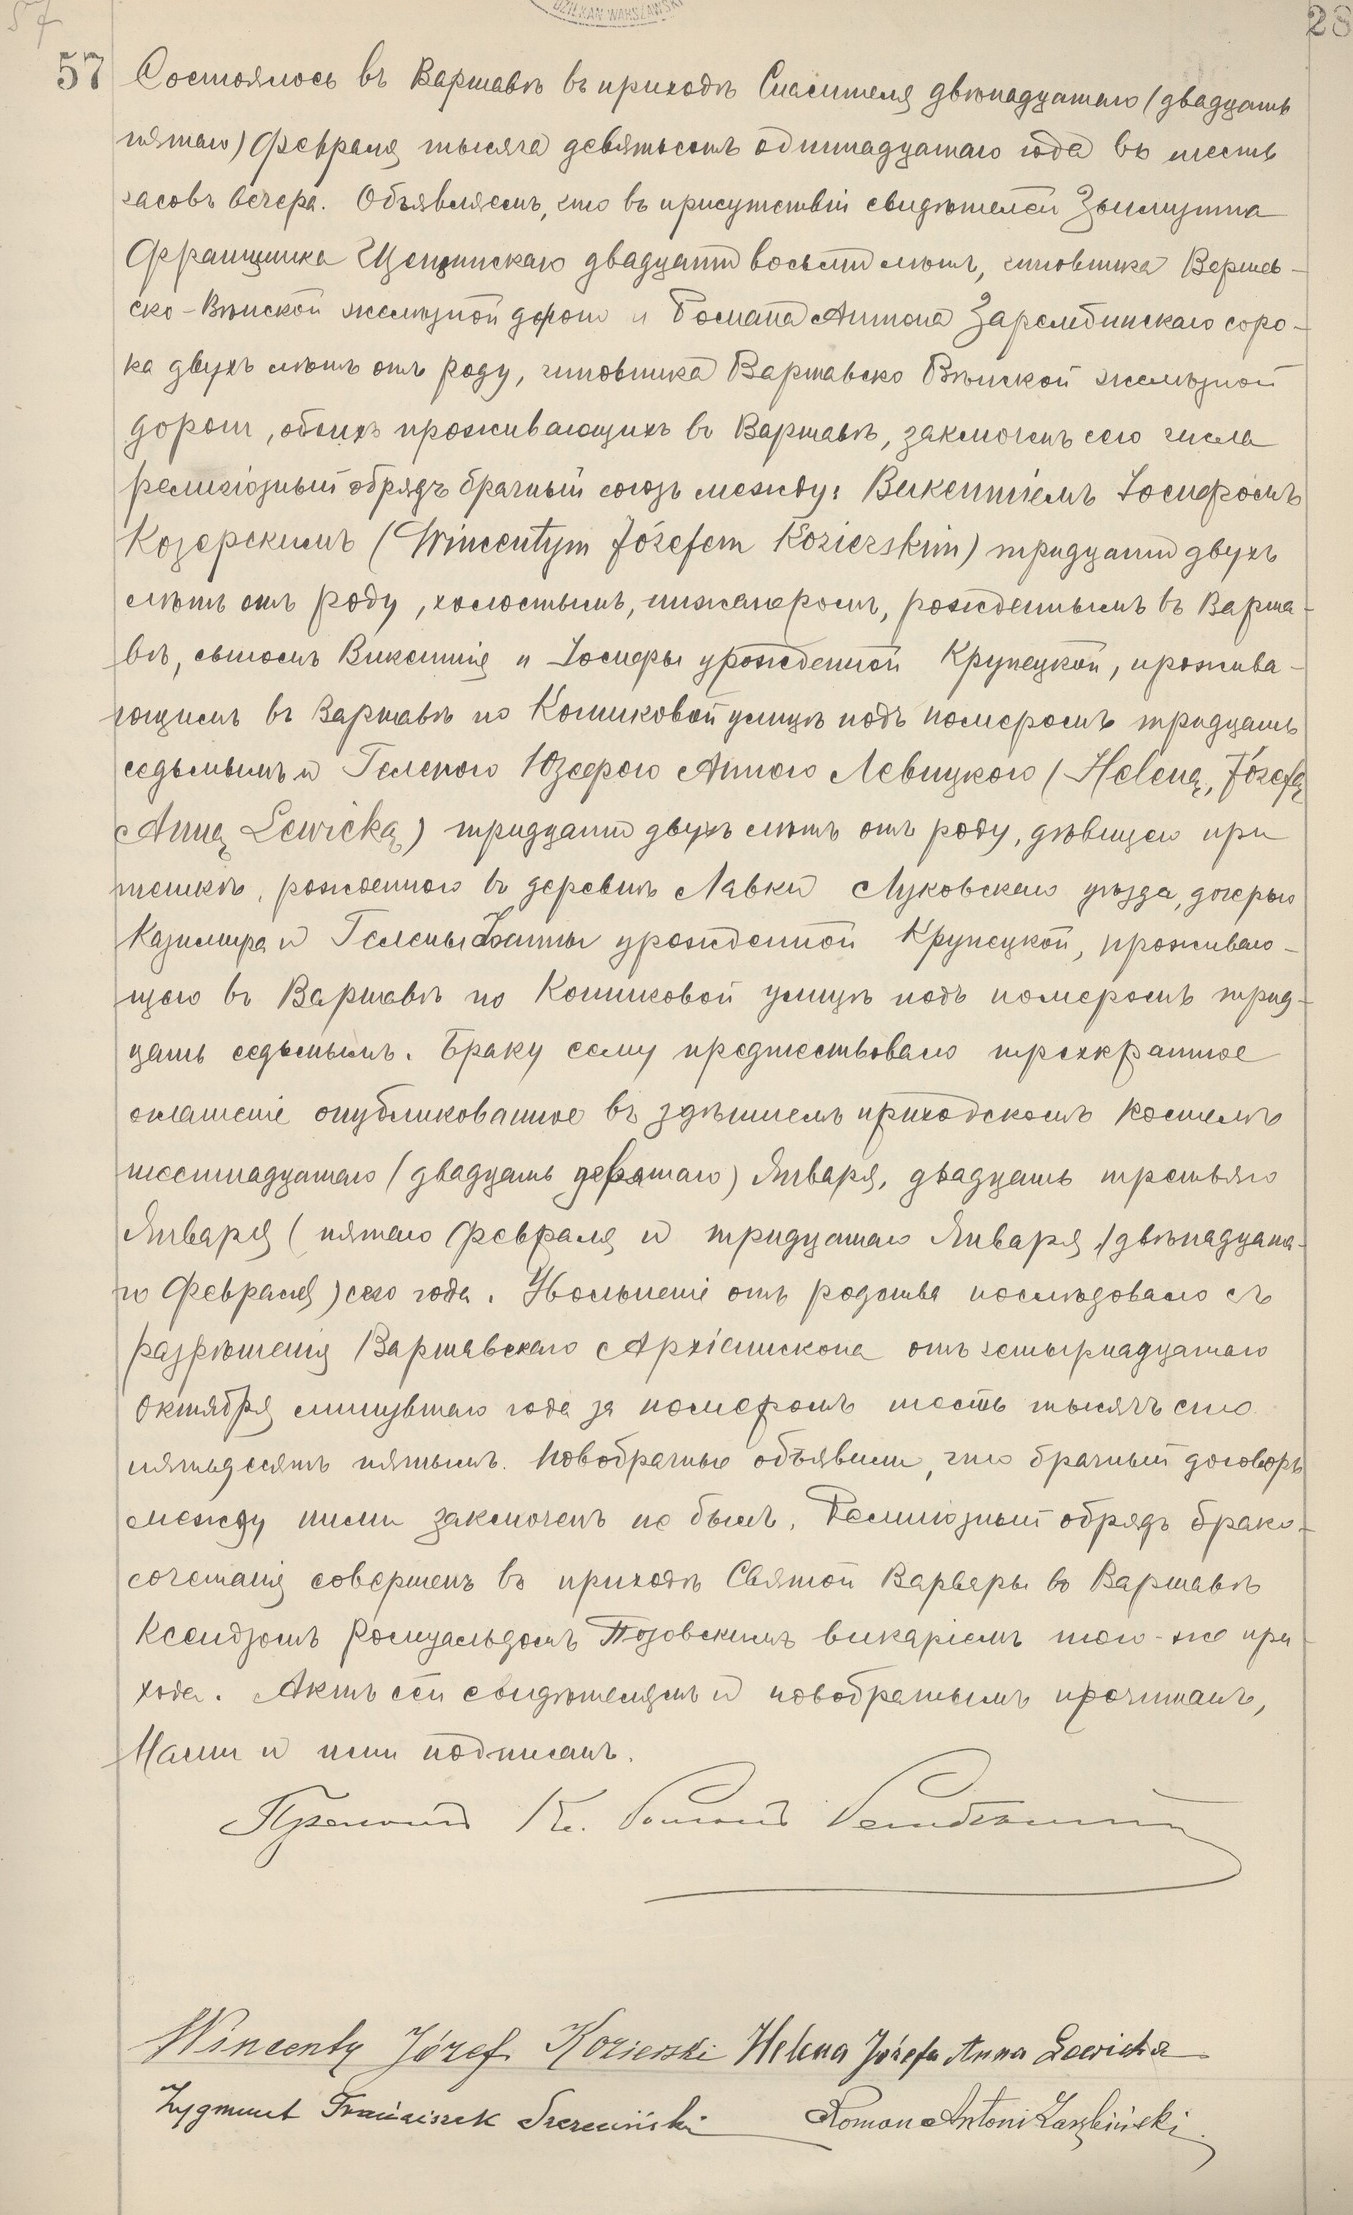 57
DZIEKAN WARSZAWSKI
28
57 Состоялось въ Варшавѣ въ приходѣ Спасителя двѣнадцатаго (двадцать
пятаго) Февраля тысяча девятьсотъ одиннадцатаго года въ шесть
часовъ вечера. Объявляемъ, что въ присутствіи свидѣтелей Зыгмунта
Францишка Щецинскаго двадцати восьми лѣтъ, чиновника Варшав-
ско-Вѣнской желѣзной дороги и Романа Антона Зарембинскаго соро-
ка двухъ лѣтъ отъ роду, чиновника Варшавско Вѣнской желѣзной
дороги, обоихъ проживающихъ въ Варшавѣ, заключенъ сего числа
религіозный обрядъ брачный союзъ между: Викентіемъ Іосифомъ
Козерскимъ (Wincentym Józefem Kozierskim) тридцати двухъ
лѣтъ отъ роду, холостымъ, инженеромъ, рожденнымъ въ Варша-
вѣ, сыномъ Викентія и Іосифы урожденной Крупецкой, прожива-
ющимъ въ Варшавѣ по Кошиковой улицѣ подъ номеромъ тридцать
седьмымъ и Геленою Юзефою Анною Левицкою (Heleną, Józefą
Anną Lewicką) тридцати двухъ лѣтъ отъ роду, дѣвицею при
рожденною въ деревнѣ Лавки Луковскаго уѣзда, дочерью
Казимира и Гелены урожденной Крупецкой, проживаю-
щею въ Варшавѣ по Кошиковой улицѣ подъ номеромъ трид-
цать седьмымъ. Браку сему предшествовало троекратное
оглашеніе опубликованное въ здѣшнемъ приходскомъ костелѣ
шестнадцатаго (двадцать девятаго) Января, двадцать третьяго
Января (пятаго Февраля и тридцатаго Января (двѣнадцата-
го Февраля) сего года. Увольненіе отъ родства послѣдовало съ
разрѣшенія Варшавскаго Архіепископа отъ четырнадцатаго
Октября минувшаго года за номеромъ шесть тысячъ сто
пятьдесятъ пятымъ. Новобрачные объявили, что брачный договоръ
между ними заключенъ не былъ. Религіозный обрядъ брако-
сочетанія совершенъ въ приходѣ Святой Варвары въ Варшавѣ
Ксендзомъ Ромуальдомъ викаріемъ того-же при-
хода. Актъ сей свидѣтелямъ и новобрачнымъ прочитанъ,
Нами и ими подписанъ.
Кс. Романъ
Wincenty Józef Kozierski Helena Józefa Anna Lewicka
Zygmunt Franciszek Szczeciński Roman Antoni Zarębiński